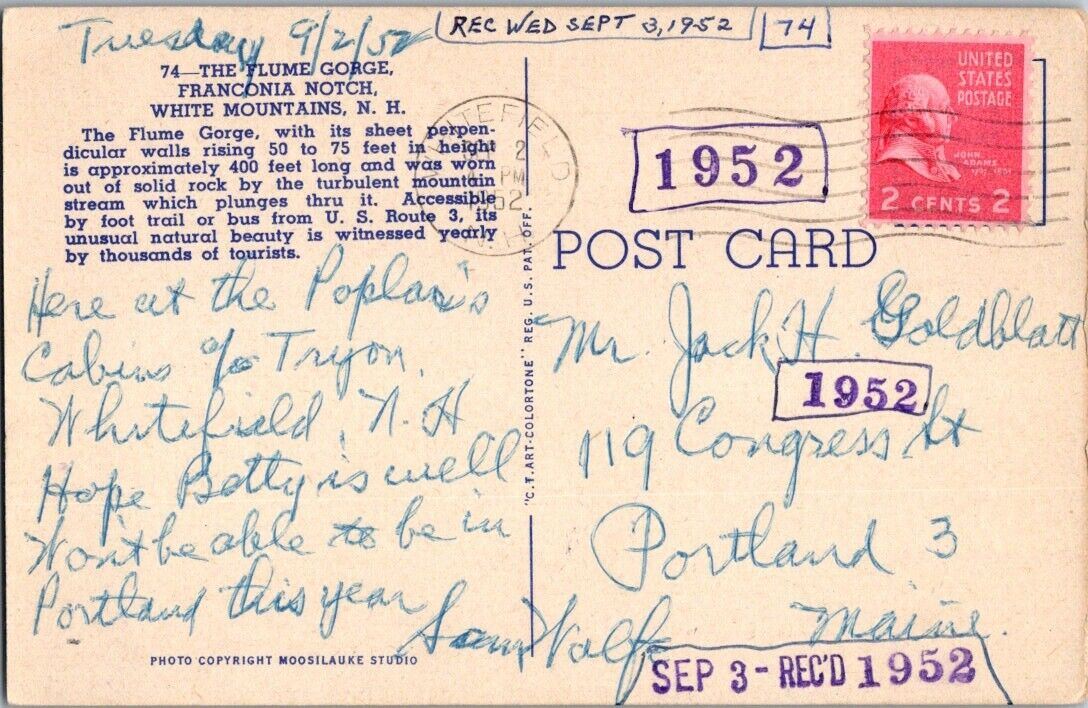 Tuesday 9/2/52
REC WED SEPT 3, 1952
74
74—THE FLUME GORGE,
FRANCONIA NOTCH,
WHITE MOUNTAINS, N. H.
The Flume Gorge, with its sheet perpen-
dicular walls rising 50 to 75 feet in height
is approximately 400 feet long and was worn
out of solid rock by the turbulent mountain
stream which plunges thru it. Accessible
by foot trail or bus from U. S. Route 3, its
unusual natural beauty is witnessed yearly
by thousands of tourists.
Here at the Poplar's
Cabins c/o Tryon,
Whitefield, N. H
Hope Betty is well
Won't be able to be in
Portland this year
Sam Wolfe
PHOTO COPYRIGHT MOOSILAUKE STUDIO
"C.T. ART-COLORTONE" REG. U. S. PAT. OFF.
WHITEFIELD
2
PM
1952
N.H.
1952
UNITED
STATES
POSTAGE
JOHN
ADAMS
2 CENTS 2
POST CARD
Mr. Jack H. Goldblatt
1952
119 Congress St
Portland 3
Maine.
SEP 3 - REC'D 1952